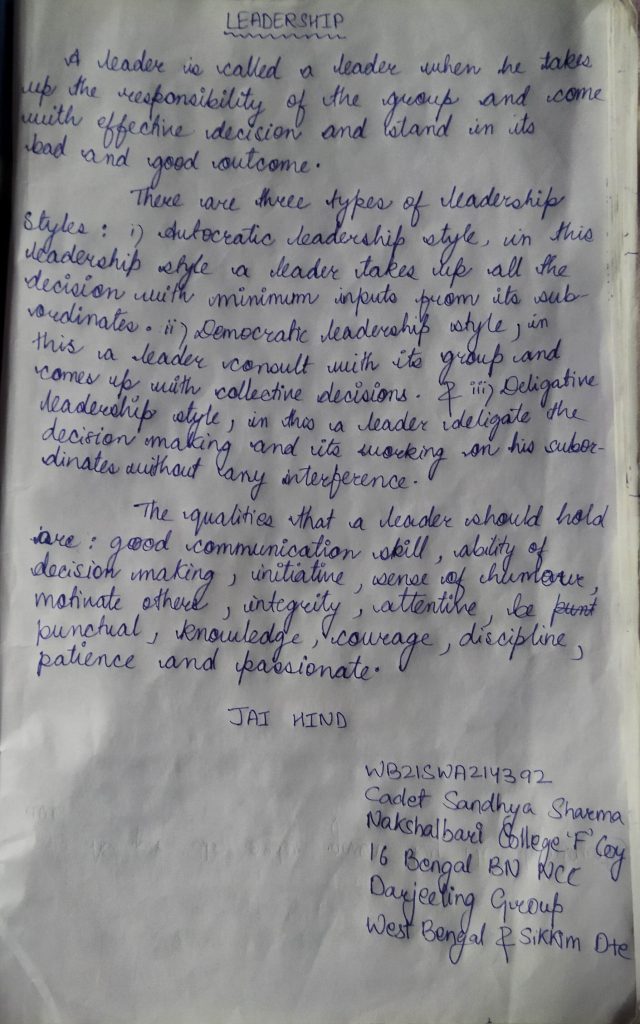 LEADERSHIP
A leader is called a leader when he takes
up the responsibility of the group and come
with effective decision and stand in its
bad and good outcome.
There are three types of leadership
styles: i) Autocratic leadership style, in this
leadership style a leader takes up all the
decision with minimum inputs from its sub-
ordinates. ii) Democratic leadership style, in
this a leader consult with its group and
comes up with collective decisions. & iii) Deligative
leadership style, in this a leader deligate the
decision making and its working on his subor-
dinates without any interference.
The qualities that a leader should hold
are: good communication skill, ability of
decision making, initiative, sense of humour,
motivate others, integrity, attentive, be punt
punctual, knowledge, courage, discipline,
patience and passionate.
JAI HIND
WB21SWA214392
Cadet Sandhya Sharma
Nakshalbari College 'F' Coy
16 Bengal BN NCC
Darjeeling Group
West Bengal & Sikkim Dte